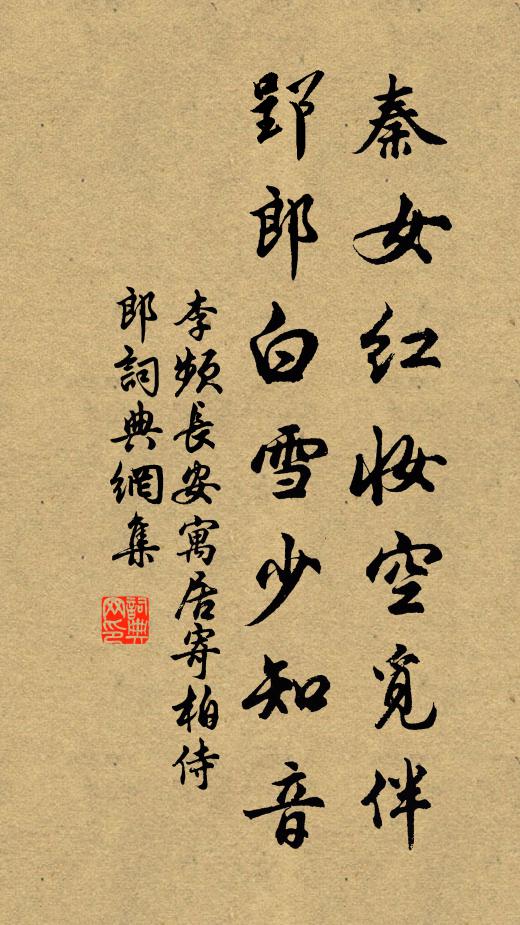 秦女红妆空觅伴
郢郎白雪少知音
李频長安寓居寄柏侍
郎詞典網集
詞典
网印